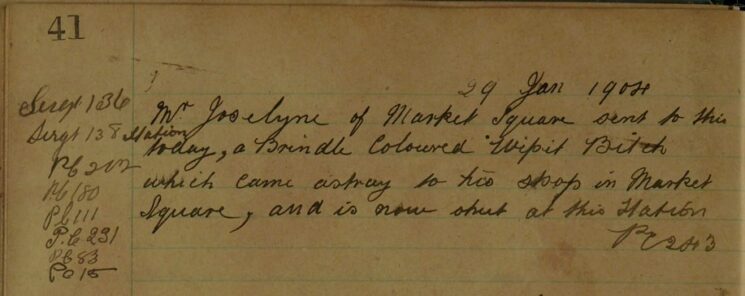 41
29 Jan 1904
Mr Joselyne of Market Square sent to this
Station
today, a Brindle Coloured Wipit Bitch
which came astray to his shop in Market
Square, and is now shut at this Station
PC 243
Sergt 136
Sergt 138
PC 202
PC 180
PC 111
P.C 231
PC 83
PC 15